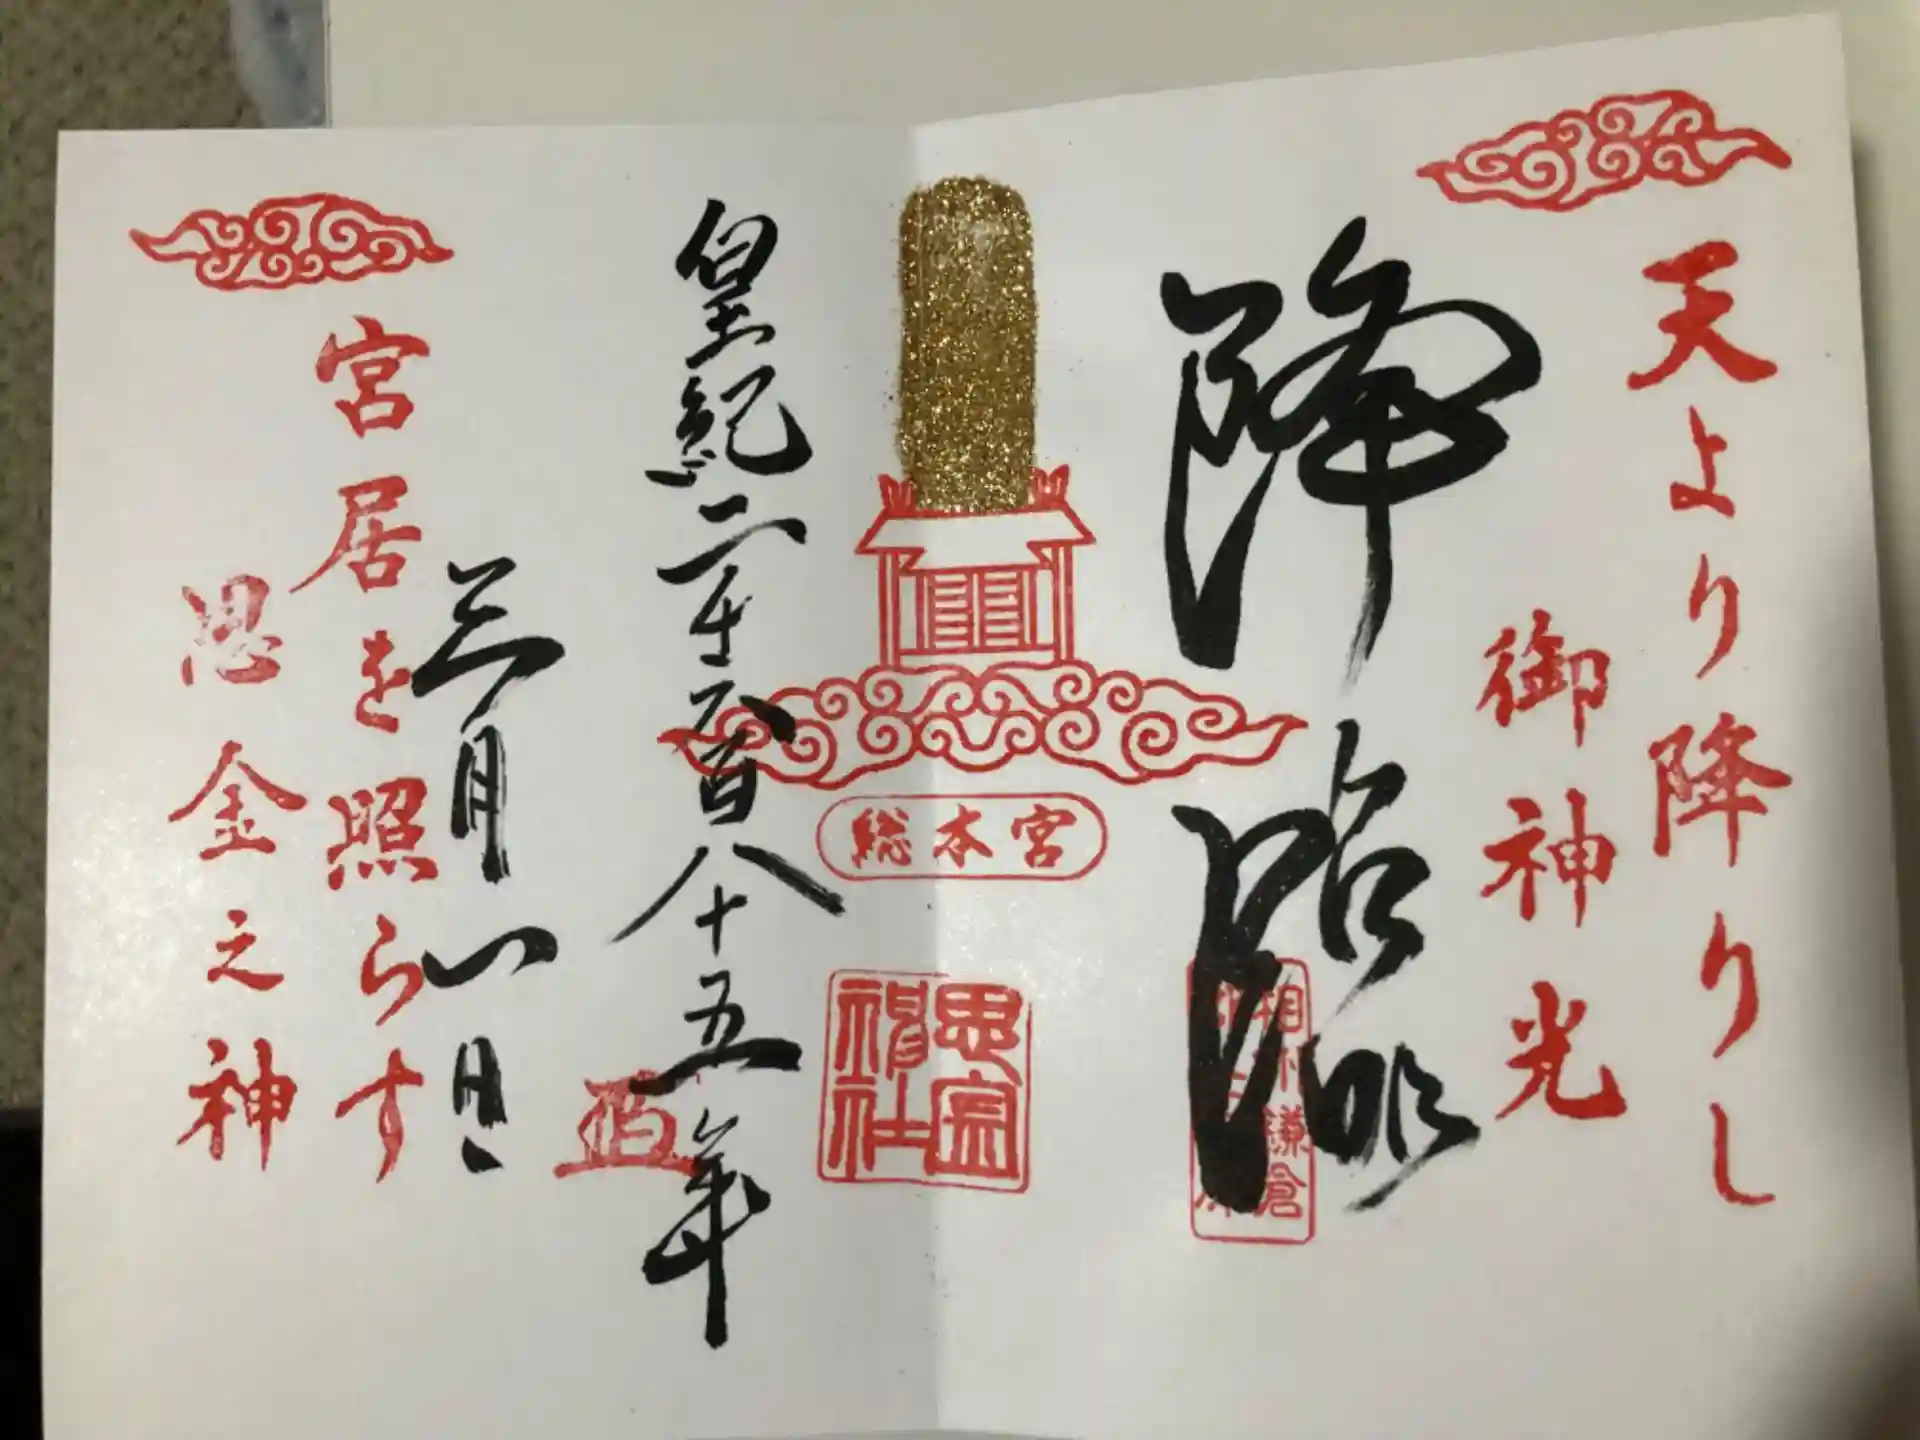 天より降りし
御神光
降臨
相州鎌倉
総本宮
思金神社
皇紀二千六百八十五年
三月一日
宮居を照らす
思金之神